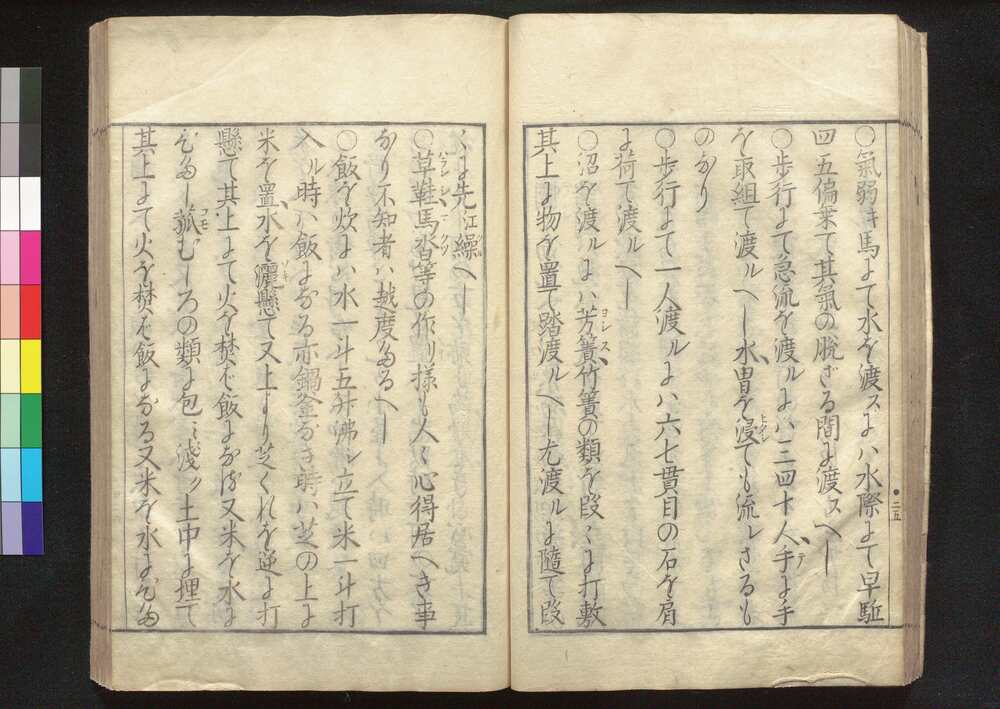 ○氣弱キ馬にて水を渡スにハ水際にて早駈
四五偏乗て其氣の脱ざる間に渡スへし
○歩行にて急流を渡ルにハ三四十人手に手
を取組て渡ルへし水冑を浸ても流レさるも
のなり
○歩行にて一人渡ルにハ六七貫目の石を肩
に荷て渡ルへし
○沼を渡ルにハ芳簀竹簀の類を段々に打敷
其上に物を置て踏渡ルへし尤渡ルに隨て段
二五
くに先江繰へし
○草鞋馬沓等の作り様も人々心得居へき事
なり不知者ハ越度たるへし
○飯を炊にハ水一斗五升沸シ立て米一斗打
入ル時ハ飯になる亦鍋釜なき時ハ芝の上に
米を置水を灑懸て又上より芝くれを逆に打
懸て其上にて火を焚ば飯になる又米を水に
ひたし菰むしろの類に包ミ淺ク土中に埋て
其上にて火を焚ば飯になる又米を水にひた